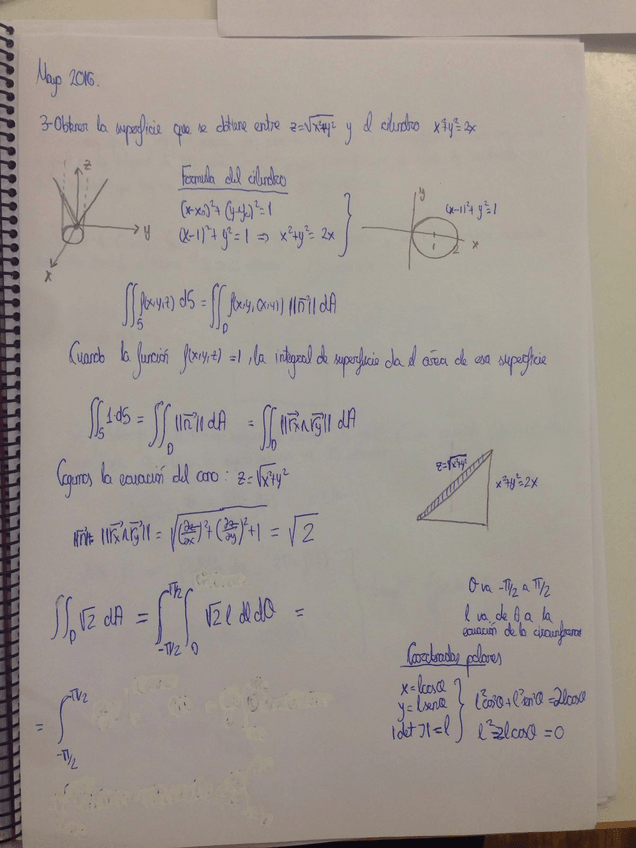 Mayo 2016.
3-Obtener la superficie que se obtiene entre z=√x²+y² y el cilindro x²+y²=2x
Formula del cilindro
(x-x₀)²+(y-y₀)²=1
(x-1)²+y²=1 ⇒ x²+y²=2x
z
y
x
y
(x-1)²+y²=1
x
2
∬_S f(x,y,z) dS = ∬_D f(x,y,(x,y)) ||n⃗|| dA
Cuando la función f(x,y,z)=1, la integral de superficie da el área de esa superficie
∬_S 1·dS = ∬_D ||n⃗|| dA = ∬_D ||r⃗x∧r⃗y|| dA
Cogemos la ecuación del cono: z=√x²+y²
z=√x²+y²
x²+y²=2x
||n⃗||= ||r⃗x∧r⃗y|| = √(∂z/∂x)²+(∂z/∂y)²+1 = √2
∬_D √2 dA = ∫_{-π/2}^{π/2} ∫_0 √2 l dl dθ =
θ va -π/2 a π/2
l va de 0 a la
ecuación de la circunferencia
Coordenadas polares
x=lcosθ
y=lsenθ
|det J|=l
l²cos²θ+l²sen²θ=2lcosθ
l²=2lcosθ=0
= ∫_{-π/2}^{π/2}